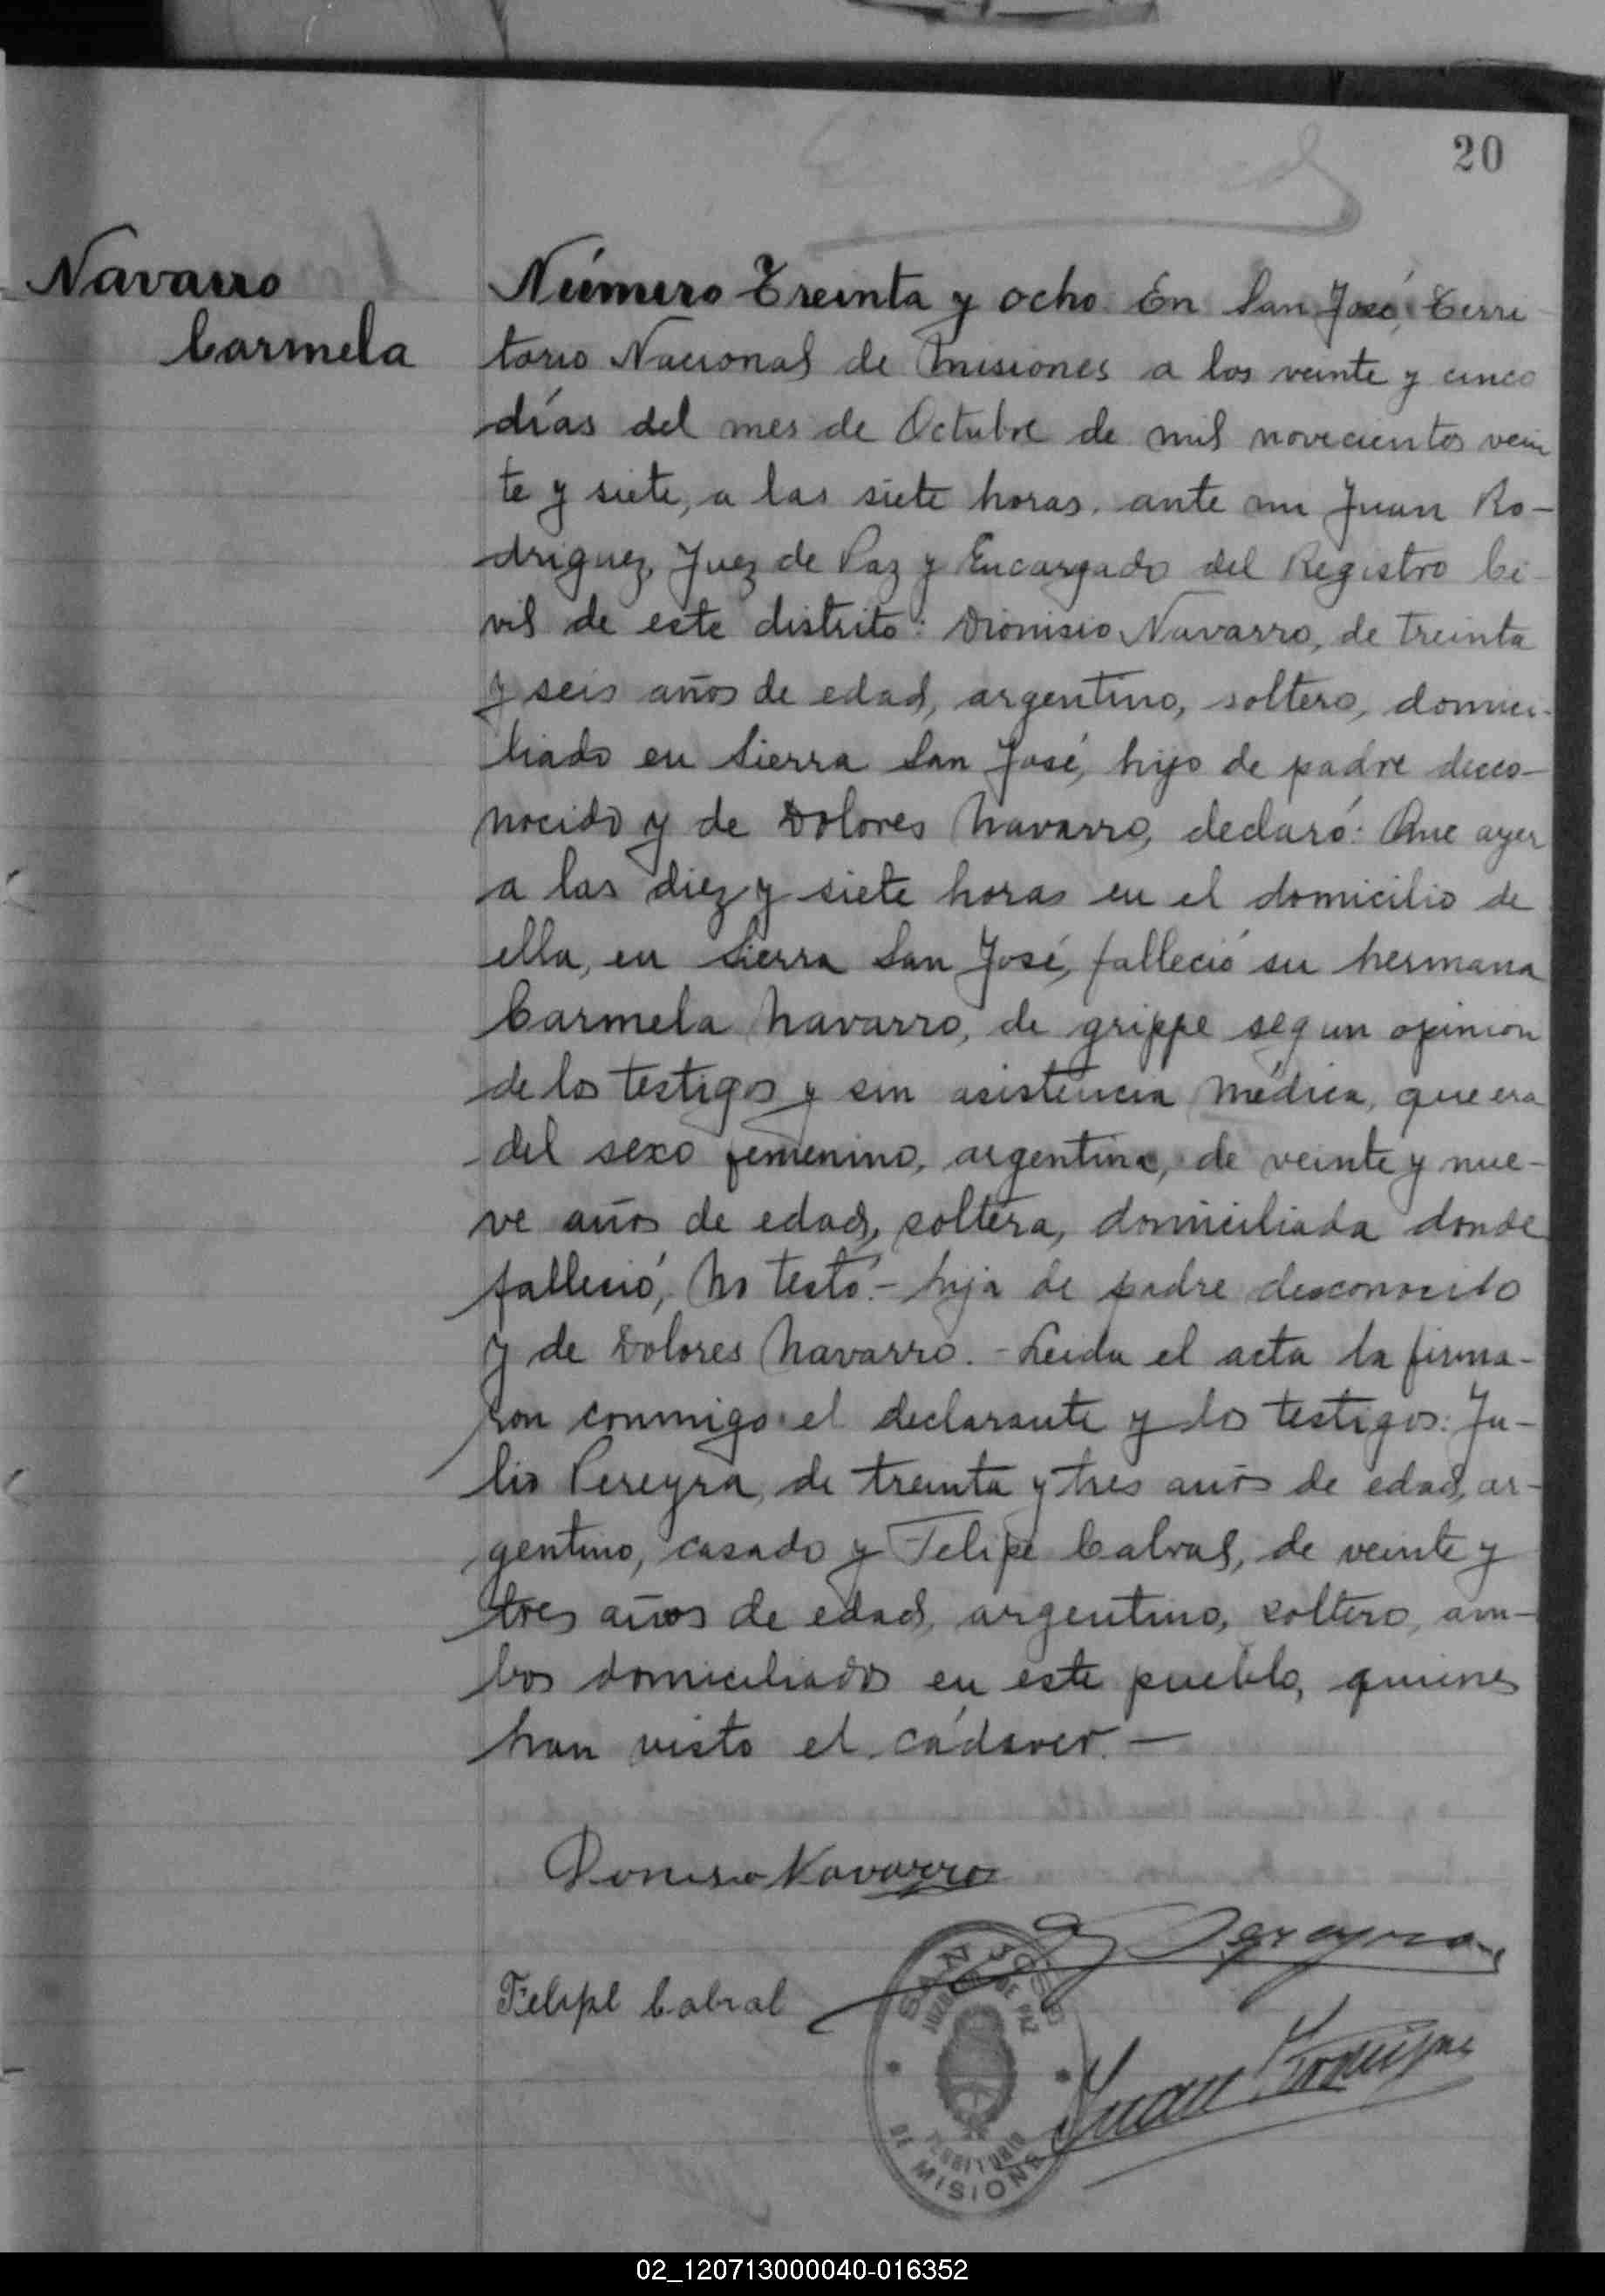 20
Navarro
Carmela
Número Treinta y ocho En San José, Terri
torio Nacional de Misiones a los veinte y cinco
días del mes de Octubre de mil novecientos vein
te y siete, a las siete horas, ante mi Juan Ro-
driguez, Juez de Paz y Encargado del Registro Ci-
vil de este distrito: Dionisio Navarro, de treinta
y seis años de edad, argentino, soltero, domici-
liado en Sierra San José, hijo de padre desco-
nocido y de Dolores Navarro, declaró: Que ayer
a las diez y siete horas en el domicilio de
ella, en Sierra San José, falleció su hermana
Carmela Navarro, de grippe segun opinion
de los testigos y sin asistencia médica, que era
del sexo femenino, argentina, de veinte y nue-
ve años de edad, soltera, domiciliada donde
falleció, No testó.- hija de padre desconocido
y de Dolores Navarro. - Leida el acta la firma-
ron conmigo el declarante y los testigos: Ju-
lio Pereyra, de treinta y tres años de edad, ar-
gentino, casado y Felipe Cabral, de veinte y
tres años de edad, argentino, soltero, am-
bos domiciliados en este pueblo, quienes
han visto el cádaver. -
Donisio Navarro
J Pereyra
Felipe Cabral
Juan Rodriguez
SAN JOSE
JUZGADO DE PAZ
TERRITORIO
DE MISIONES
02_120713000040-016352